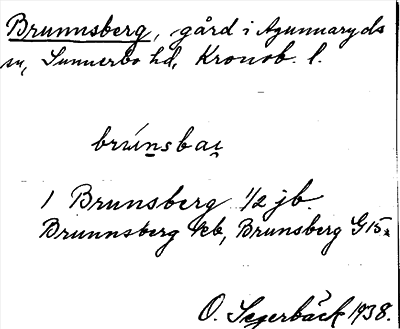 Brunnsberg, gård i Agunnaryds
sn, Sunnerbo hd, Kronob. l.
brúnsbaı
1 Brunsberg 1/2 jb.
Brunnsberg kb, Brunsberg G 15.
O. Segerbäck 1938.